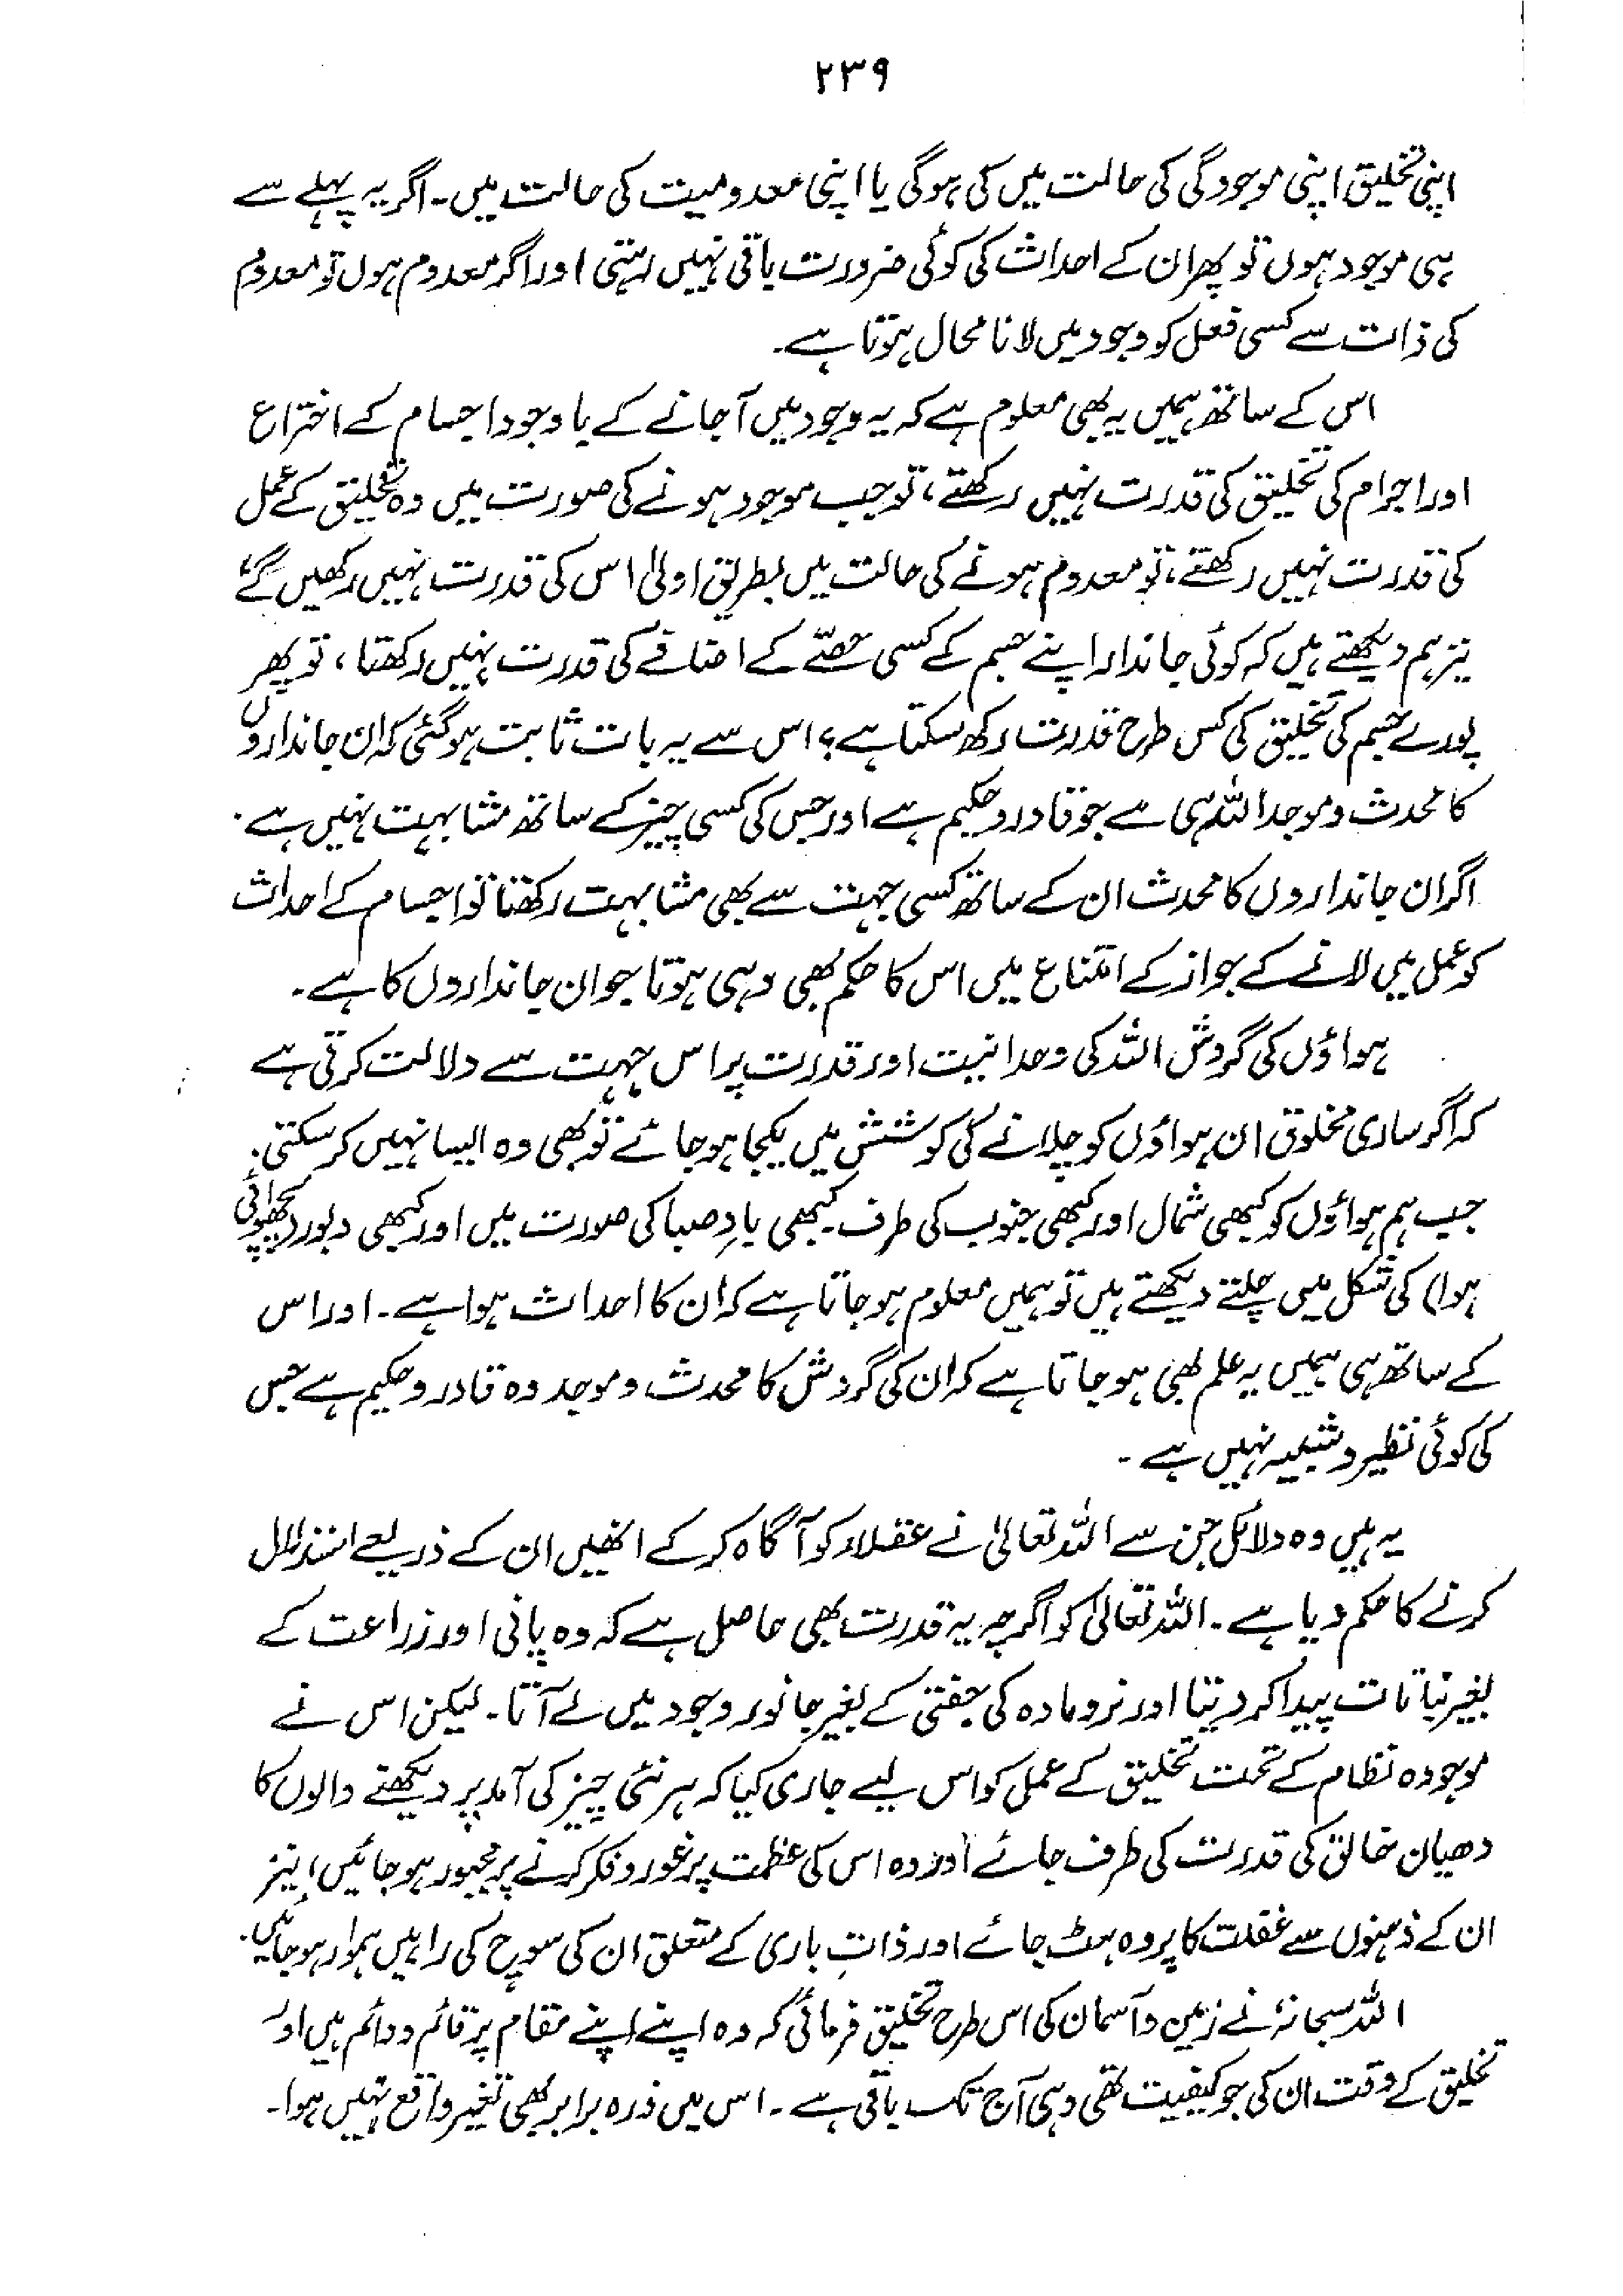 ۲۳۹
اپنی تخلیق اپنی موجودگی کی حالت میں کی ہوگی یا اپنی معدومیت کی حالت میں۔ اگر یہ پہلے سے
ہی موجود ہوں تو پھر ان کے احداث کی کوئی ضرورت باقی نہیں رہتی اور اگر معدوم ہوں تو معدوم
کی ذات سے کسی فعل کو وجود میں لانا محال ہوتا ہے۔
اس کے ساتھ ہمیں یہ بھی معلوم ہے کہ یہ وجود میں آجانے کے باوجود اجسام کے اختراع
اور اجرام کی تخلیق کی قدرت نہیں رکھتے، تو جب موجود ہونے کی صورت میں وہ تخلیق کے عمل
کی قدرت نہیں رکھتے، تو معدوم ہونے کی حالت میں بطریق اولیٰ اس کی قدرت نہیں رکھیں گے،
نیز ہم دیکھتے ہیں کہ کوئی جاندار اپنے جسم کے کسی حصّے کے اضافے کی قدرت نہیں رکھتا، تو پھر
پورے جسم کی تخلیق کی کس طرح قدرت رکھ سکتا ہے؟ اس سے یہ بات ثابت ہوگئی کہ ان جانداروں
کا محدث و موجد اللہ ہی ہے جو قادر و حکیم ہے اور جس کی کسی چیز کے ساتھ مشابہت نہیں ہے۔
اگر ان جانداروں کا محدث ان کے ساتھ کسی جہت سے بھی مشابہت رکھتا تو اجسام کے احداث
کو عمل میں لانے کے جواز کے امتناع میں اس کا حکم بھی وہی ہوتا جو ان جانداروں کا ہے۔
ہواؤں کی گردش اللہ کی وحدانیت اور قدرت پر اس جہت سے دلالت کرتی ہے
کہ اگر ساری مخلوق ان ہواؤں کو چلانے کی کوشش میں یکجا ہوجائے تو بھی وہ ایسا نہیں کرسکتی۔
جب ہم ہواؤں کو کبھی شمال اور کبھی جنوب کی طرف۔ کبھی بادِ صبا کی صورت میں اور کبھی دبور (پچھوائی
ہوا) کی شکل میں چلتے دیکھتے ہیں تو ہمیں معلوم ہوجاتا ہے کہ ان کا احداث ہوا ہے۔ اور اس
کے ساتھ ہی ہمیں یہ علم بھی ہوجاتا ہے کہ ان کی گردش کا محدث و موجد وہ قادر و حکیم ہے جس
کی کوئی نظیر و شبیہ نہیں ہے۔
یہ ہیں وہ دلائل جن سے اللہ تعالیٰ نے عقلاء کو آگاہ کرکے انھیں ان کے ذریعے استدلال
کرنے کا حکم دیا ہے۔ اللہ تعالیٰ کو اگرچہ یہ قدرت بھی حاصل ہے کہ وہ پانی اور زراعت کے
بغیر نباتات پیدا کر دیتا اور نر و مادہ کی جفتی کے بغیر جانور وجود میں لے آتا۔ لیکن اس نے
موجودہ نظام کے تحت تخلیق کے عمل کو اس لیے جاری کیا کہ ہر نئی چیز کی آمد پر دیکھنے والوں کا
دھیان خالق کی قدرت کی طرف جائے اور وہ اس کی عظمت پر غور و فکر کرنے پر مجبور ہوجائیں، نیز
ان کے ذہنوں سے غفلت کا پردہ ہٹ جائے اور ذاتِ باری کے متعلق ان کی سوچ کی راہیں ہموار ہوجائیں۔
اللہ سبحانہٗ نے زمین و آسمان کی اس طرح تخلیق فرمائی کہ وہ اپنے اپنے مقام پر قائم و دائم ہیں اور
تخلیق کے وقت ان کی جو کیفیت تھی وہی آج تک باقی ہے۔ اس میں ذرہ برابر بھی تغیر واقع نہیں ہوا۔